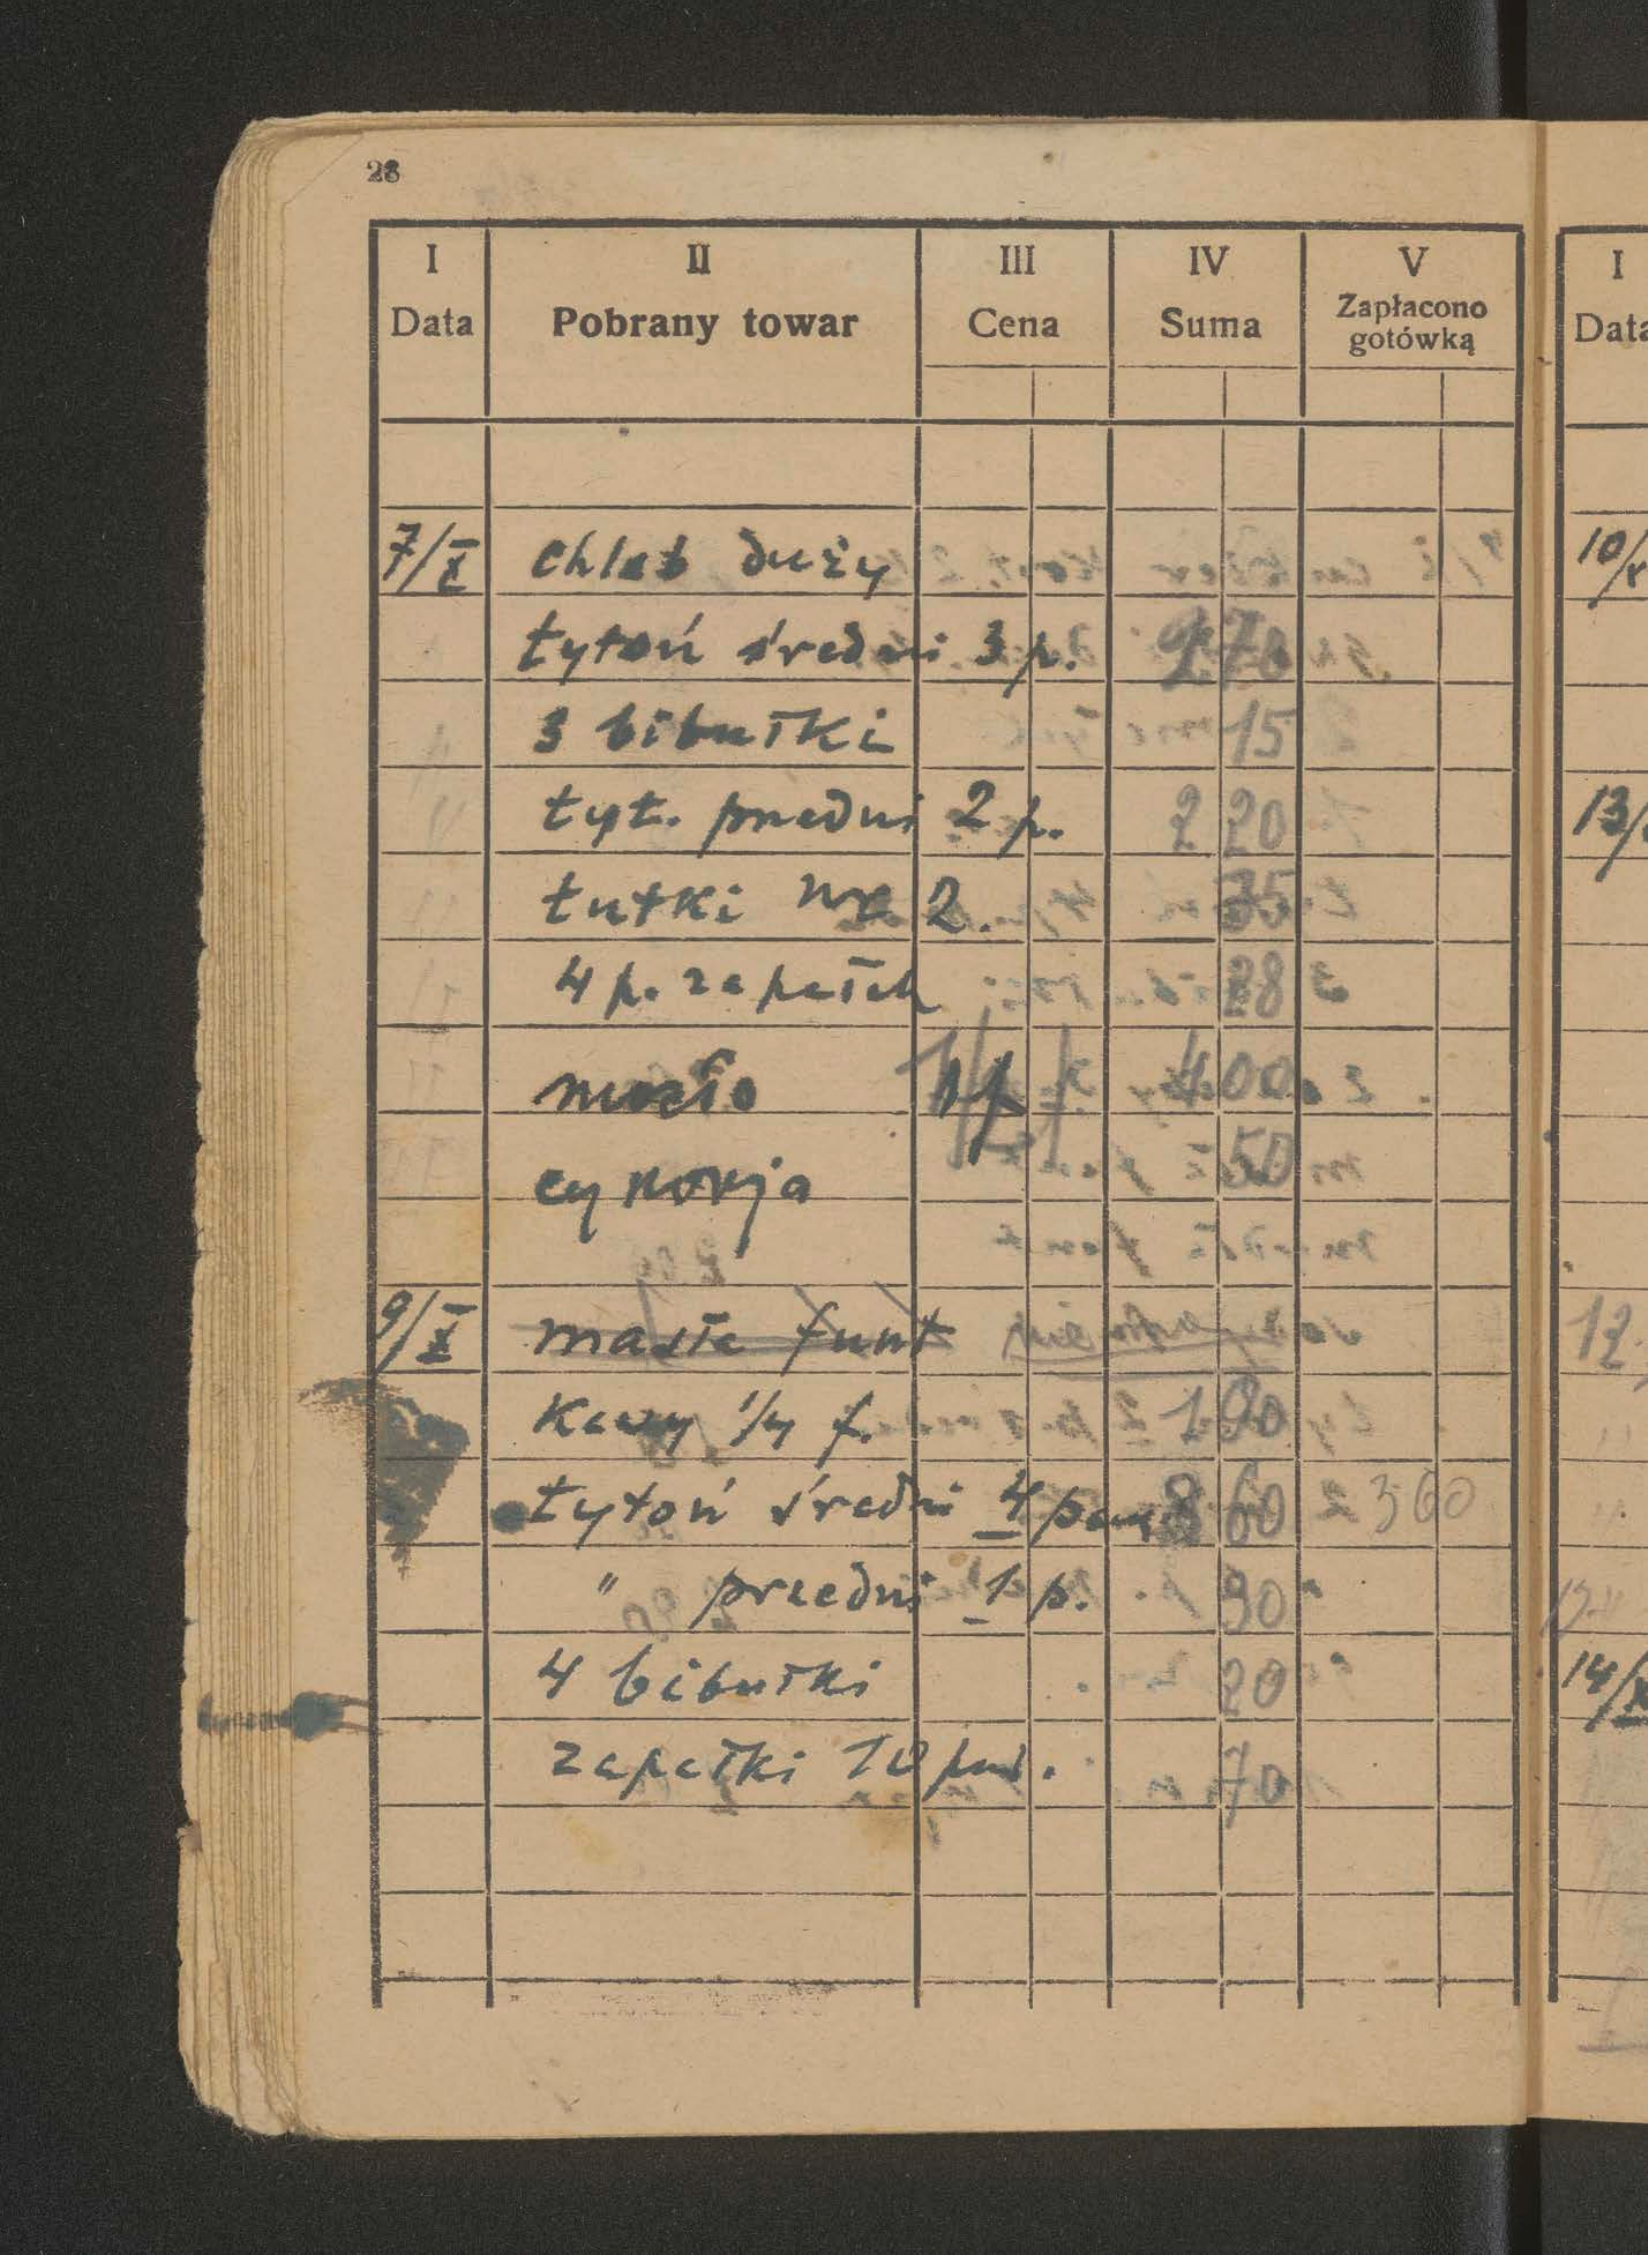 28
I II III IV V
Data Pobrany towar Cena Suma Zapłacono gotówką
7/X chleb duży
tytoń średni 3 p. 2 70
3 bibułki 15
tyt. przedni 2 p. 2 20
tutki nr 2. 35
4 p. zapałek 28
masło 1 f 4 00
cykorja 50
9/X masła funt
Kawy 1/4 f. 1 90
tytoń średni 4 pacz. 3 60 2360
" przedni 1 p. 90
4 bibułki 20
zapałki 10 pud. 70
I
Data
10/X
13/
12
14/X